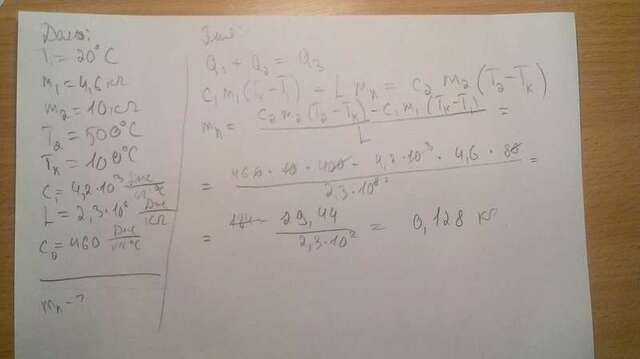 Дано:
T₁ = 20°C
m₁ = 4,6 кг
m₂ = 10 кг
T₂ = 500°C
Tк = 100°C
C₁ = 4,2·10³ Дж/кг°C
L = 2,3·10⁶ Дж/кг
C₂ = 460 Дж/кг°C
mп - ?
Q₁ + Q₂ = Q₃
C₁m₁(Tк-T₁) - Lmп = C₂m₂(T₂-Tк)
mп = (C₂m₂(T₂-Tк) - C₁m₁(Tк-T₁))/L =
= (460·10·400 - 4,2·10³·4,6·80)/2,3·10⁶ =
= 29,44/2,3·10² = 0,128 кг